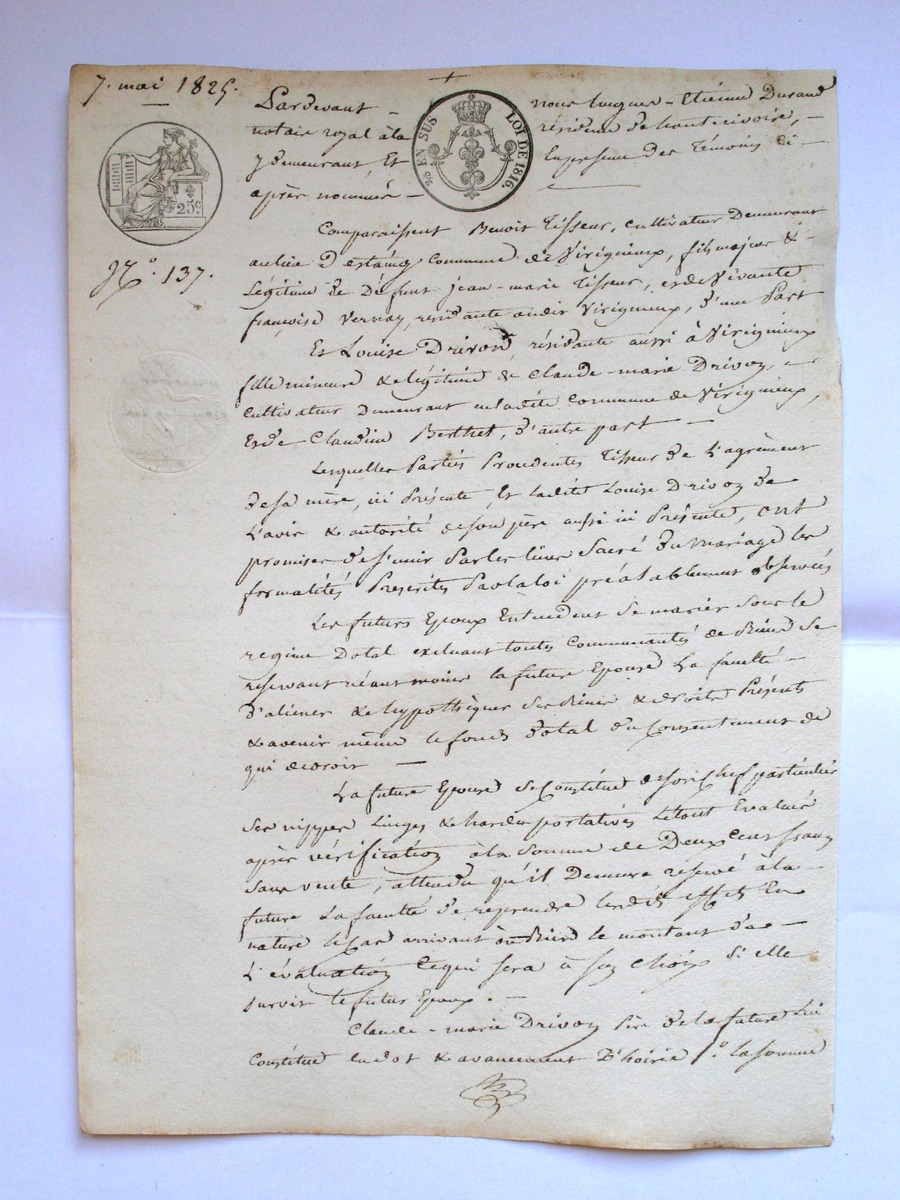 7. mai 1825.
Pardevant nous hugues-Etiénne Durand
notaire royal à la résidence de haute rivoire,
y demeurant, Et En présence des Témoins ci-
après nommés
2/6 EN SUS LOI DE 1816.
25c.
N°. 137.
Comparaissent Benoit Tisseur, cultivateur Demeurant
au lieu D'estaing Commune de Virigneux, fils majeur &
Légitime de Défunt jean-marie Tisseur, et de Vivante
françoise Vernay, residante audit Virigneux, d'une Part
Et Louise Drivon, résidante aussi à Virigneux
fille mineure & légitime de Claude-marie Drivon,
Cultivateur Demeurant en ladite Commune de Virigneux,
Et de Claudine Berthet, d'autre part
Lesquelles Parties Procedentes Tisseur de L'agrèment
de sa mère, ici Présente Et ladite Louise Drivon de
L'avis & autorité de son père aussi ici Présente, ont
promises de s'unir Par les liens Sacré du Mariage les
formalités Prescrites Par la loi préalablement observées
Les futurs Epoux Entendent Se marier Sous le
regime Dotal excluant toutes Communautés de Biens Se
reservant néant moins la future Epouse La faculté
d'aliéner & hypothéquer Ses Biens & droits Présents
& avenir même le fonds Dotal du Consentement de
qui de droit
La future Epouse Se Constitue de Son Chef particulier
Ses nippes Linges & hardes portatives Le tout Evalués
après vérification à la Somme de Deux cens francs
Sans vente, attendu qu'il Demeure réservé à la
future La faculté de reprendre lesdits effets En
nature le Cas arrivant ou Bien le montant de
L'évaluation Ce qui Sera à Son Choix Si elle
Survit le futur Epoux.
Claude-marie Drivon Père de la future Lui
Constitue en dot & avancement D'hoirie La Somme